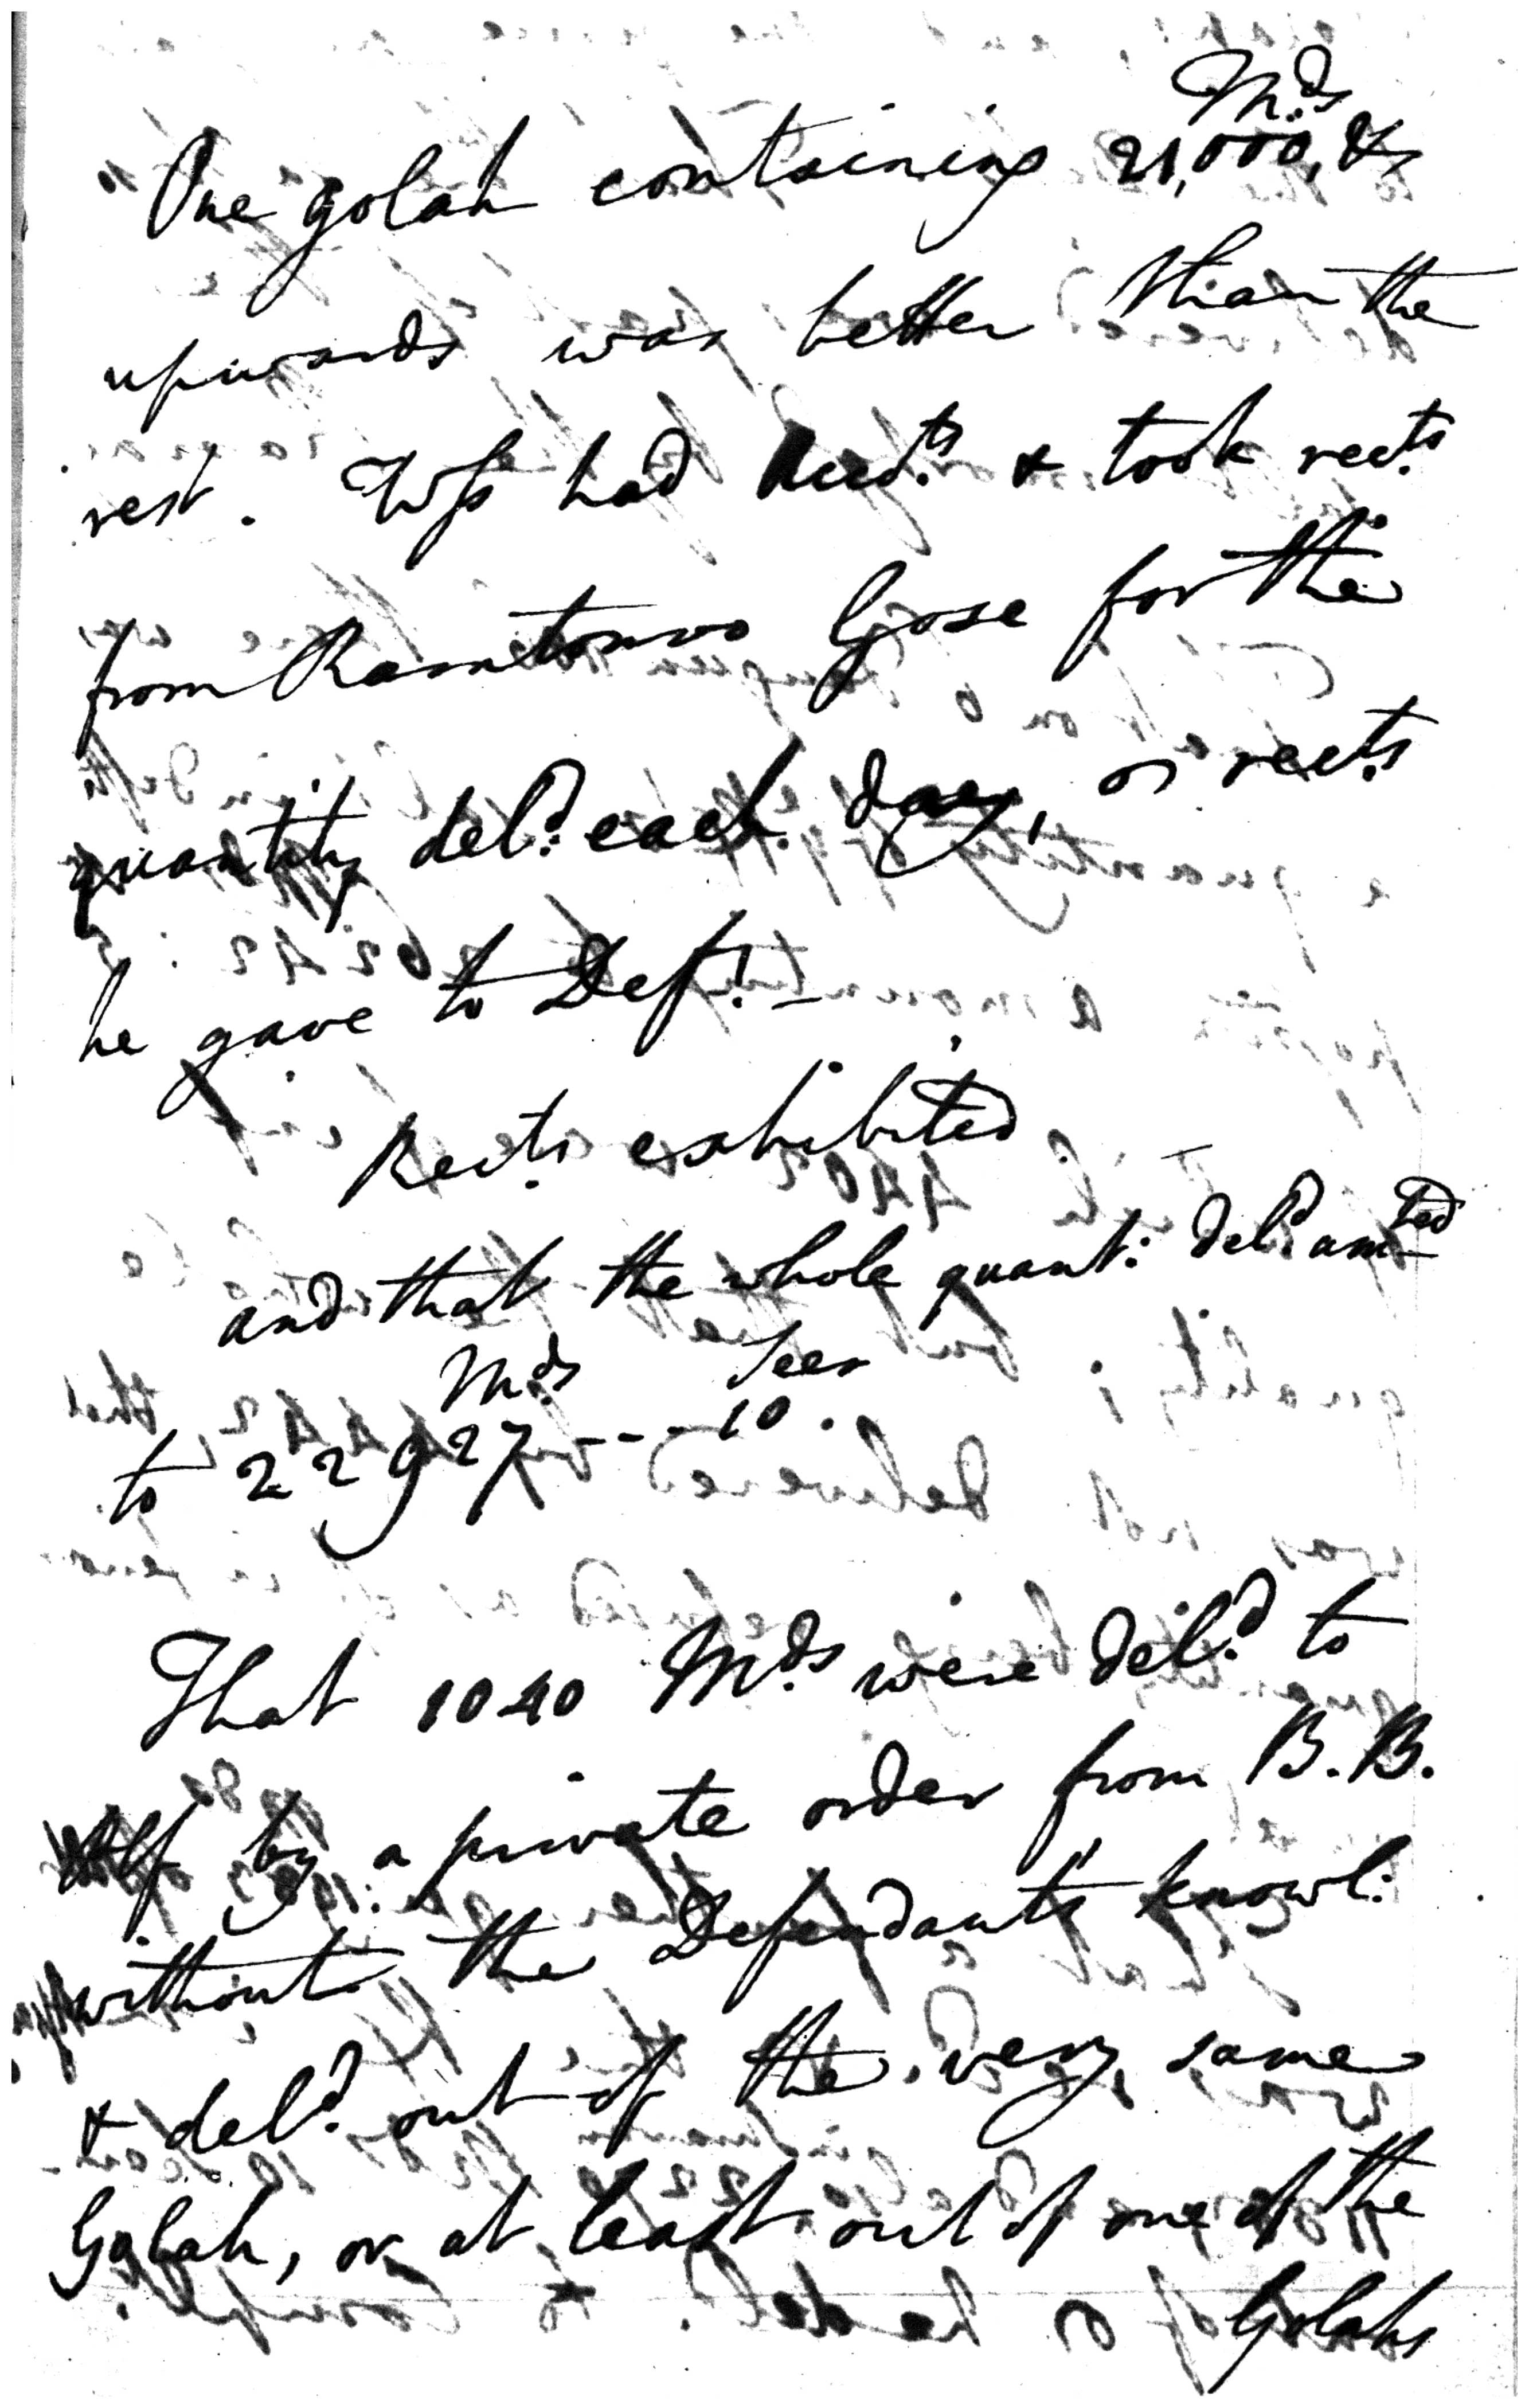 Mds
One golah containing 21,000, &
upwards was better than the
rest. Wss had recd.ts & took rects
from Ramtonoo Gose for the
quantity deld. each day, or rects
he gave to Deft. —
Rects exhibited —
and that the whole quant: deld. amted
Mds Seer
to 22927 - - - 10.
That 1040 Mds were deld. to
by a private order from B. B.
without the Defendants knowl:
& deld. out of the very same
Golah, or at least out of one of the
Golahs